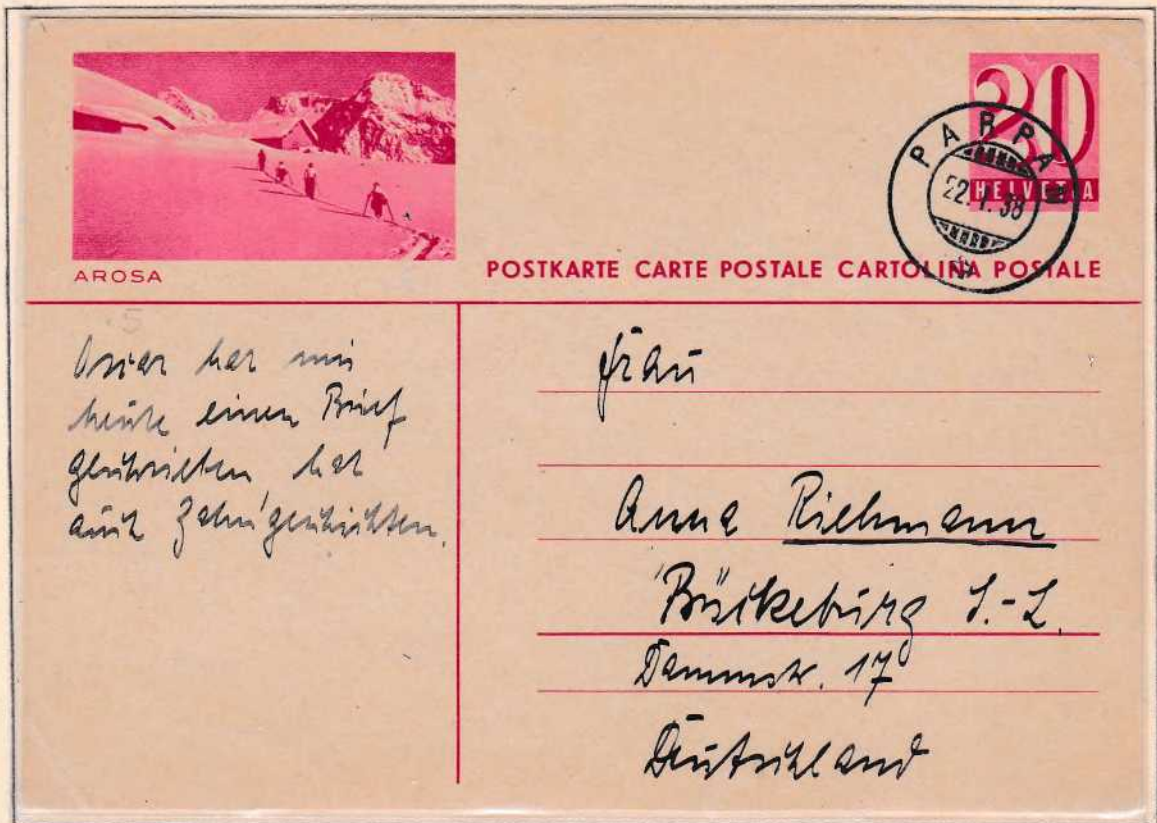 20
HELVETIA
PARPAN
22.1.38
AROSA
POSTKARTE CARTE POSTALE CARTOLINA POSTALE
5
Oscar hat mir
heute einen Brief
geschrieben hat
auch Zahngeschichten.
Frau
Anna Riehmann
Bückeburg S.-L.
Dammstr. 17
Deutschland